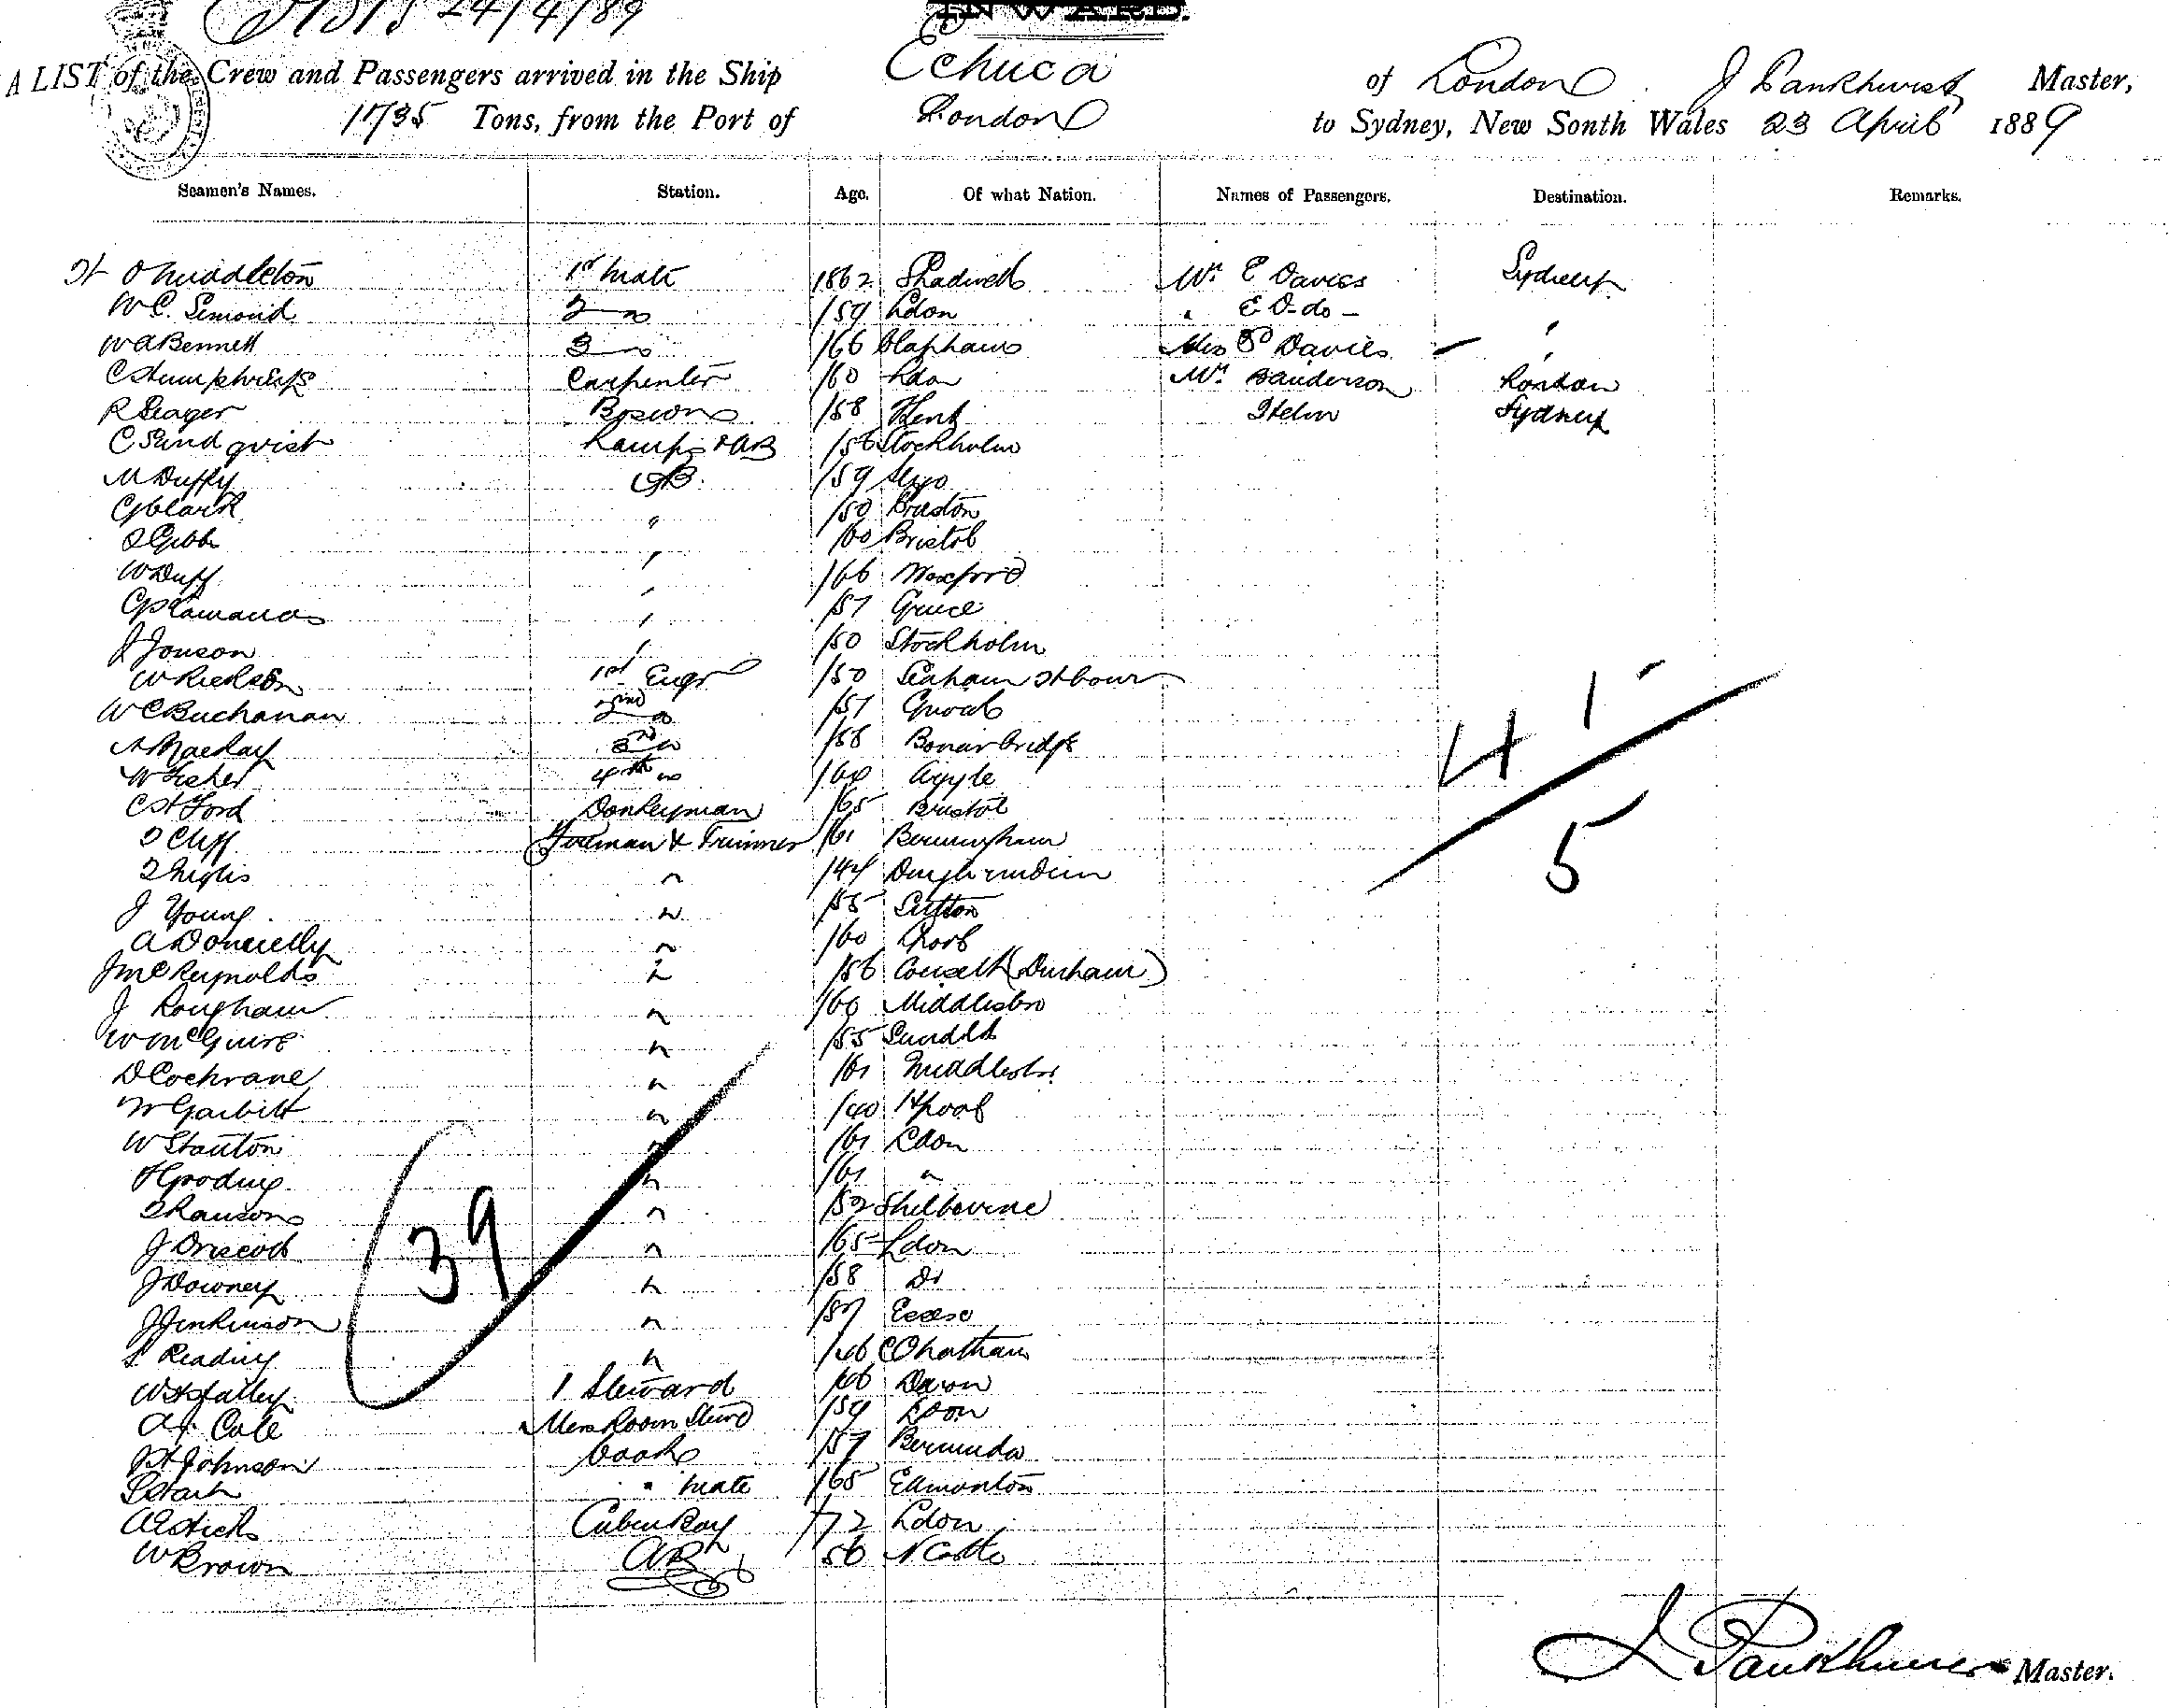 24/4/89 INWARD.
A LIST of the Crew and Passengers arrived in the Ship Echuca of London J Pankhurst Master,
1735 Tons, from the Port of London to Sydney, New South Wales 23 April 1889
Seamen's Names. Station. Age. Of what Nation. Names of Passengers. Destination. Remarks.
O Middleton 1st Mate 1862 Shadwell Mr. E Davies Sydney
W C. Simond 2 " /59 Ldon " E D-do -
W A Bennett 3 " /66 Clapham Miss Davies "
C Humphreys Carpenter /60 Ldon Mr. Sanderson London
R Seager Boscon /58 Kent Sydney
C Sund qvist Lamps & AB /56 Stockholm
M Duffy AB. /59 Sligo
G Clark " /50 Preston
Gibb " /60 Bristol
W Duff " /66 Wexford
G " /57 Greece
J Jonson " /50 Stockholm
W 1st Engr /50 Seaham Hbour
W C Buchanan 2nd " /57
A Mackay 3rd " /58 Bonar bridge
W Fisher 4th " /64 Argyle
C H Ford Donkeyman /65 Bristol
Cliff Fireman & Trimmer /61 Birmingham
" /44
J Young " /55 Sutton
A Donnelly " /60
J McReynolds " /56 Consett (Durham)
J Rougham " /60 Middlesbro
W McGuire " /55 Sundld
D Cochrane " /61 Middlesbro
W Garbitt " /40 Hpool
W Stanton " /61 Ldon
Gooding " /61 "
Ransons " /52 Shelbourne
J Driscoll " /65 Ldon
J Downey " /58 Do
J Jenkinson " /57
S Reading " /46 Chatham
1 Steward /46 Devon
A J. Cole Mess Room Stewd /59 Ldon
J H Johnson Cook /57 Bermuda
" Mate /65 Edmonton
A E Hicks Cabin Boy /72 Ldon
W Brown AB 56 N Castle
39
4 1
5
J Pankhurst Master.